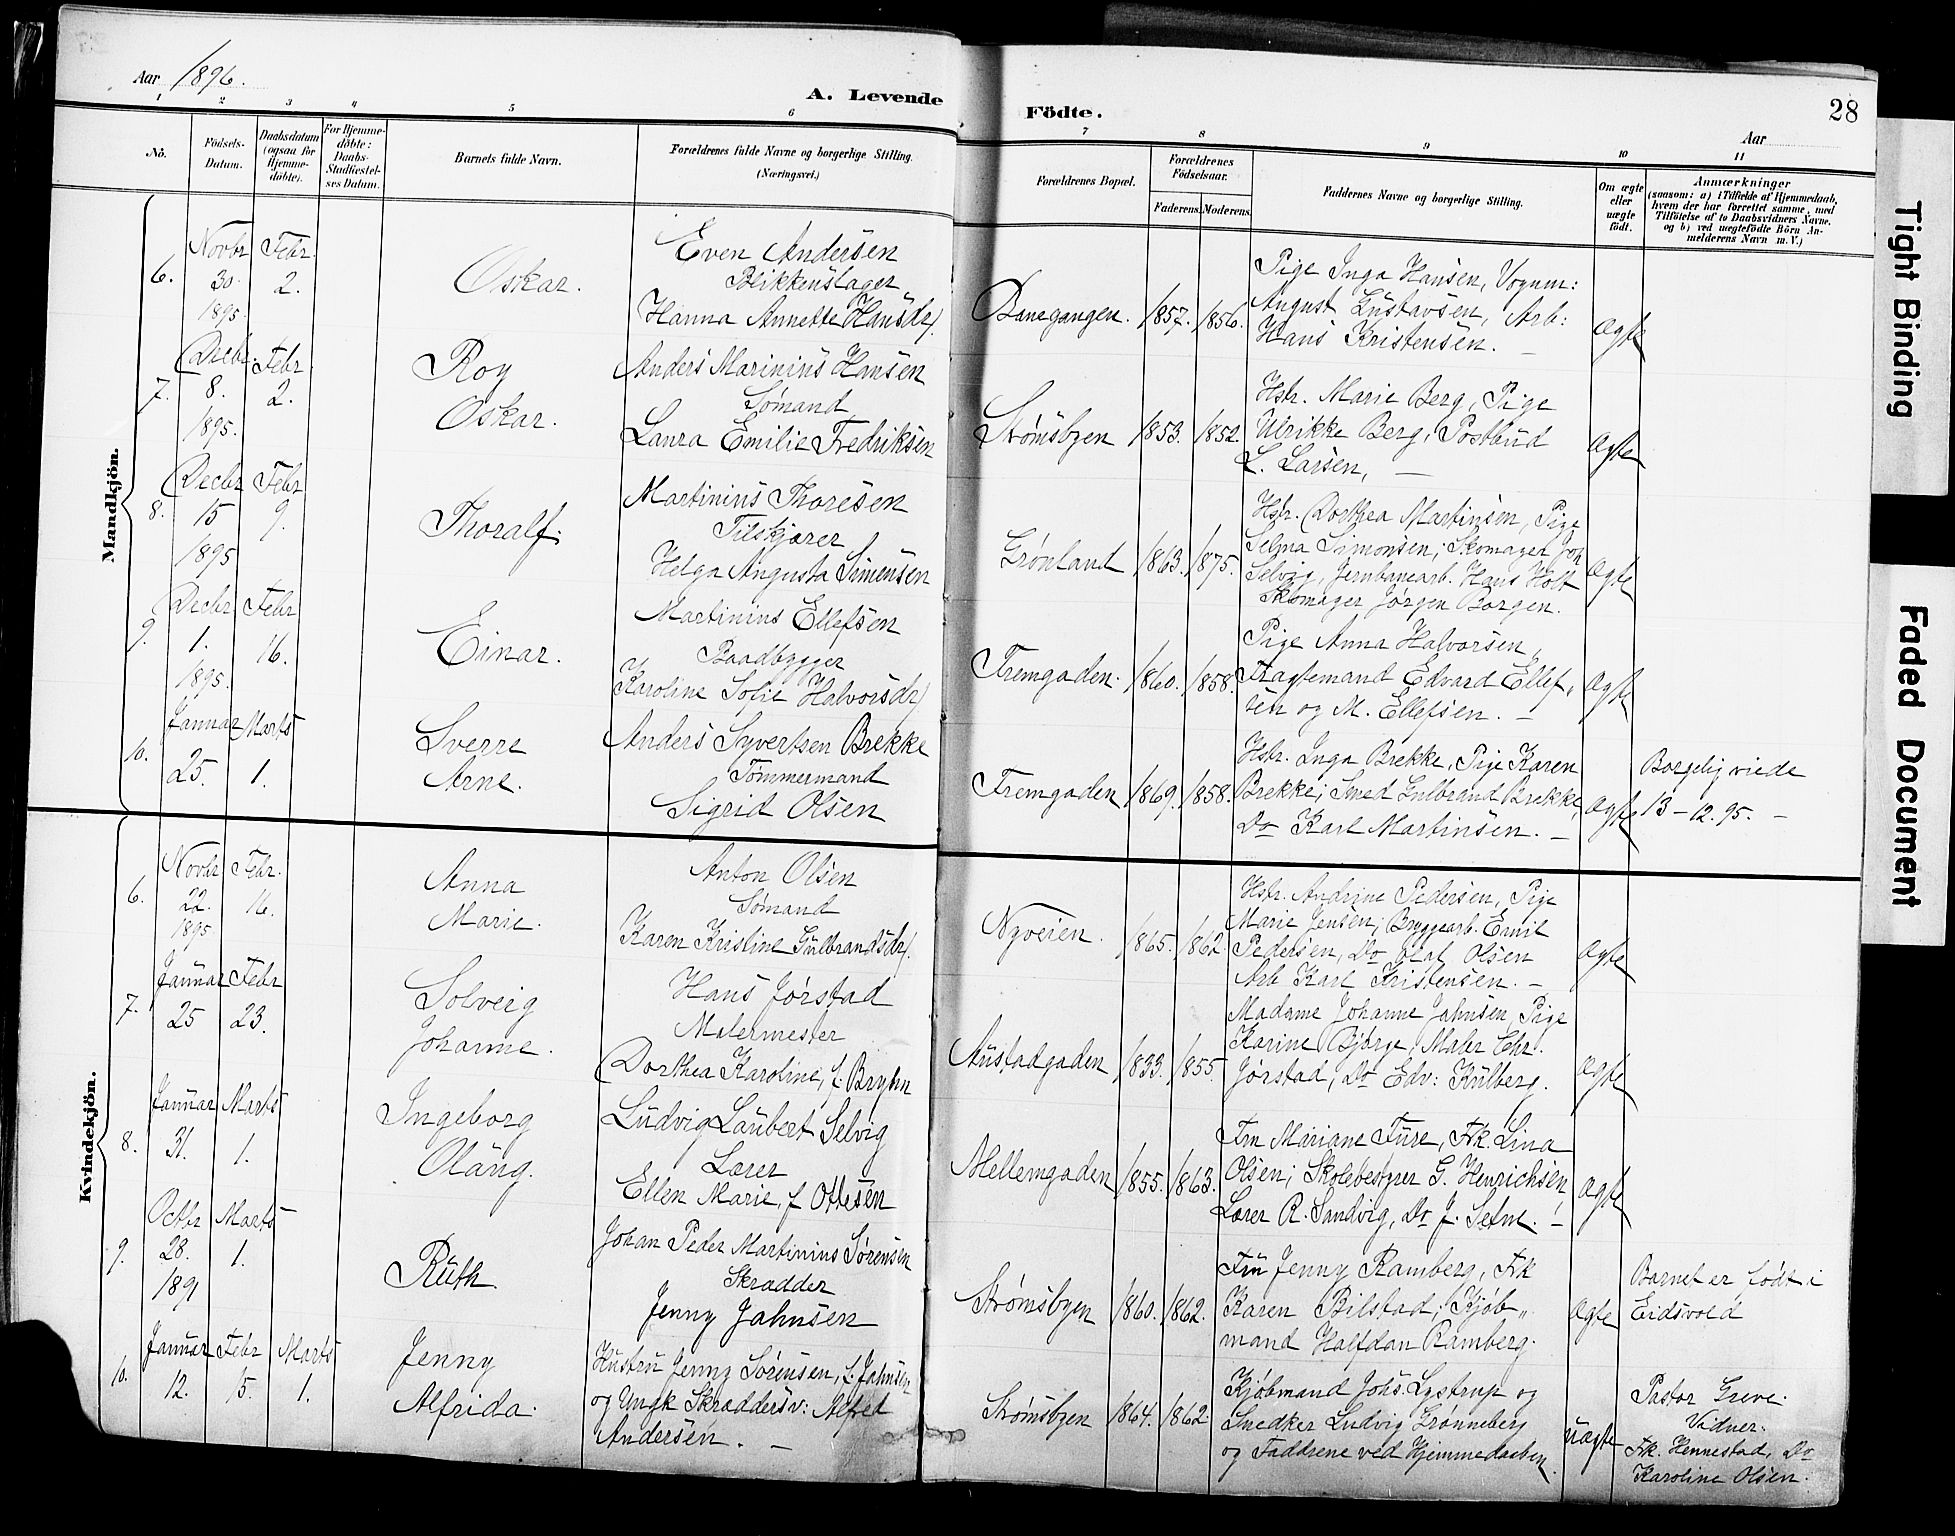 Aar 1896.
A. Levende Födte.
28
Aar
1 2 3 4 5 6 7 8 9 10 11
No.
Födsels-
Datum.
Daabsdatum
(ogsaa for
Hjemme-
döbte).
For Hjemme-
döbte:
Daabs-
Stadfæstel-
ses Datum.
Barnets fulde Navn.
Forældrenes fulde Navne og borgerlige Stilling.
(Næringsvei.)
Forældrenes Bopæl.
Forældrenes
Födselsaar.
Faderens.
Moderens.
Faddernes Navne og borgerlige Stilling.
Om ægte
eller
uægte
födt.
Anmærkninger
(saasom: a) i Tilfælde af Hjemmedaab,
hvem der har forrettet samme, med
Tilföielse af to Daabsvidners Navne,
og b) ved uægtefödte Börn An-
melderens Navn m. V.)
Mandkjön.
6.
Novbr
30.
1895
Febr.
2.
Oskar.
Even Andersen
Blikkenslager
Hanna Annette Hansdr.
Banegangen.
1857.
1856.
Pige Inga Hansen, Vognm:
August Gustavsen, Arb:
Hans Kristensen. –
Ægte
7.
Decbr.
8.
1895.
Febr.
2.
Roy
Oskar.
Anders Marinius Hansen
Sømand
Laura Emilie Fredriksen
Strømsbyen
1853.
1852.
Hstr. Marie Berg, Pige
Ulrikke Berg; Postbud
L. Larsen, –
Ægte
8.
Decbr
15
1895
Febr
9.
Thoralf.
Martinius Thoresen
Tilskjærer
Helga Augusta Simensen
Grønland
1863.
1875.
Hstr. Dorthea Martinsen, Pige
Selma Simonsen; Skomager Joh
Selvig, Jernbanearb. Hans Holt
Skomager Jørgen Borgen.
Ægte
9.
Decbr
1.
1895.
Febr
16.
Einar.
Martinius Ellefsen
Baadbygger
Karoline Sofie Halvorsdr.
Fremgaden.
1860.
1858.
Pige Anna Halvorsen,
Fragtemand Edvard Ellef-
sen og M. Ellefsen. –
Ægte
10.
Januar
25.
Marts
1.
Sverre
Arne.
Anders Syvertsen Brekke
Tømmermand
Sigrid Olsen
Fremgaden
1869.
1858.
Hstr. Inga Brekke, Pige Karen
Brekke; Smed Gulbrand Brekke,
Do Karl Martinsen. –
Ægte
Borgelig viede
13 – 12. 95. –
Kvindekjön.
6.
Novbr
22.
1895
Febr.
16.
Anna
Marie.
Anton Olsen
Sømand
Karen Kristine Gulbrandsdr.
Nyveien.
1865.
1862
Hstr. Andrine Pedersen, Pige
Marie Jensen; Bryggearb. Emil
Pedersen, Do Olaf Olsen
Arb Karl Kristensen. –
Ægte
7.
Januar
25
Febr
23.
Solveig
Johanne.
Hans Jørstad
Malermester
Dorthea Karoline, f. Bryhn
Austadgaden
1833.
1855.
Madame Johanne Jahnsen, Pige
Karine Bjørge, Maler Chr.
Jørstad, Do Edv: Kulberg.
Ægte
8.
Januar
31.
Marts
1.
Ingeborg
Olaug.
Ludvig Laubert Selvig
Lærer
Ellen Marie, f Ottesen
Mellemgaden
1855.
1863.
Fru Mariane Fure, Frk. Lina
Olsen; Skolebestyrer G. Henrichsen
Lærer R. Sandvig, Do J. Selm. –
Ægte
9.
Octbr
28.
1891
Marts
1.
Ruth
Johan Peder Martinius Sørensen
Skrædder
Jenny Jahnsen
Strømsbyen
1860.
1862.
Fru Jenny Ramberg, Frk
Karen Bilstad; Kjøb-
mand Halfdan Ramberg.
Ægte
Barnet er født i
Eidsvold
10.
Januar
12.
Febr
15.
Marts
1.
Jenny
Alfrida.
Hustru Jenny Sørensen, f. Jahnsen
og Ungk. Skræddersv: Alfred
Andersen. –
Strømsbyen
1864.
1862.
Kjøbmand Johs. Lystrup og
Snedker Ludvig Grønneberg
og Faddrene ved Hjemmedaaben.
uægte
Pastor Greve.
Vidner:
Frk. Hennestad, Do
Karoline Olsen.
Tight Binding
Faded Document